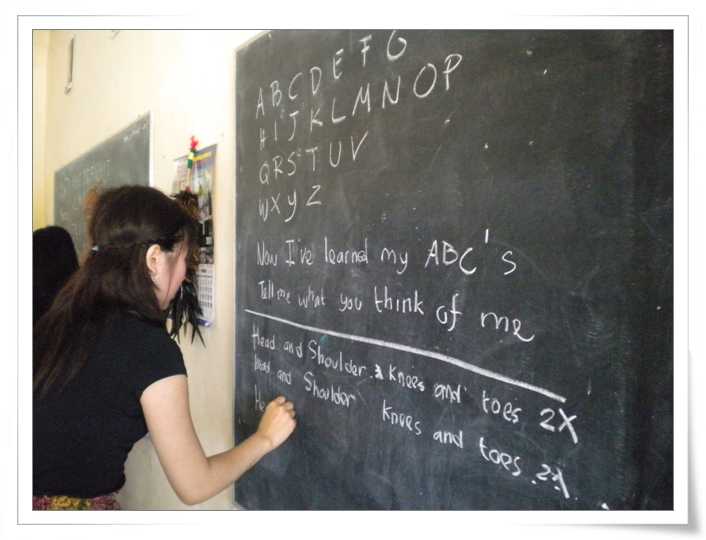 A B C D E F G
H I J K L M N O P
Q R S T U V
W X Y Z
Now I've learned my ABC's
Tell me what you think of me
Head and Shoulder knees and toes 2X
Head and Shoulder knees and toes 2X
He